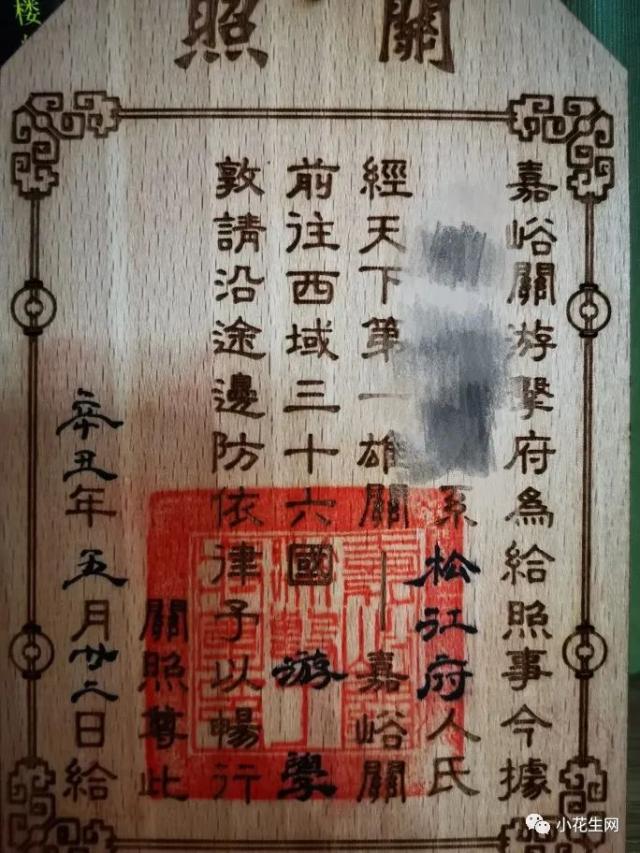 照關
嘉峪關游擊府為給照事今據
系松江府人氏
經天下第一雄關—嘉峪關
前往西域三十六國游學
敦請沿途邊防依律予以暢行
關照尊此
辛丑年五月廿二日給
楼
小花生网